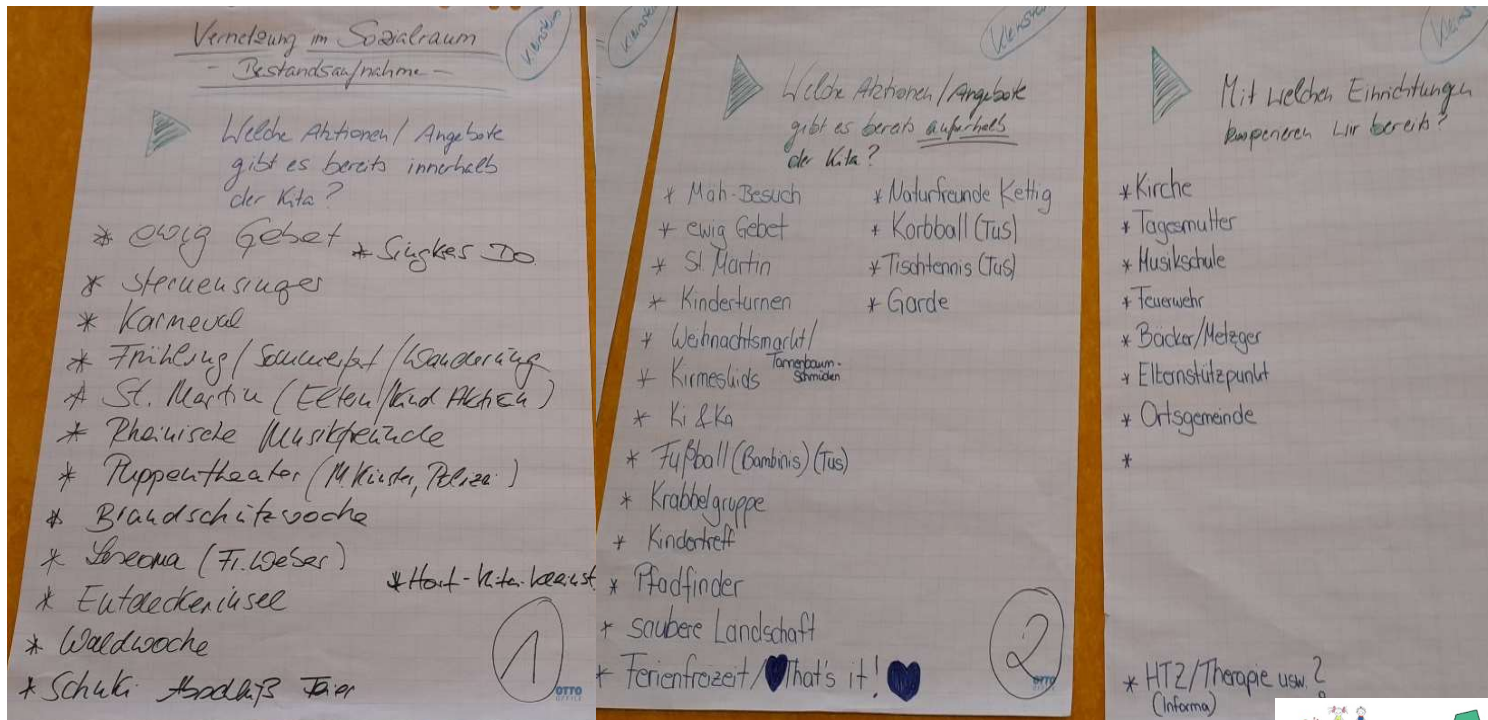 Vernetzung im Sozialraum
- Bestandsaufnahme -
Welche Aktionen / Angebote
gibt es bereits innerhalb
der Kita?
* ewig Gebet
* Singkreis Do.
* Sternensinger
* Karneval
* Frühling / Sommerfest / Wanderung
* St. Martin (Eltern/Kind Aktion)
* Rheinische Musikfreunde
* Puppentheater (M. Kinster, Polizei)
* Brandschutzwoche
* Leseoma (Fr. Weber)
* Hort-Kita-
* Entdeckerinsel
* Waldwoche
* Schuki Abschluß Feier
1
OTTO
OFFICE
Welche Aktionen / Angebote
gibt es bereits außerhalb
der Kita?
* Mäh-Besuch
* ewig Gebet
* St. Martin
* Kinderturnen
* Weihnachtsmarkt/
Tannenbaum-
Schmücken
* Kirmeskids
* Ki & Ka
* Fußball (Bambinis) (Tus)
* Krabbelgruppe
* Kindertreff
* Pfadfinder
* saubere Landschaft
* Ferienfreizeit / That's it!
* Naturfreunde Kettig
* Korbball (Tus)
* Tischtennis (Tus)
* Garde
2
OTTO
Mit welchen Einrichtungen
kooperieren wir bereits?
* Kirche
* Tagesmutter
* Musikschule
* Feuerwehr
* Bäcker/Metzger
* Elternstützpunkt
* Ortsgemeinde
*
* HTZ/Therapie usw. ?
(Informa)